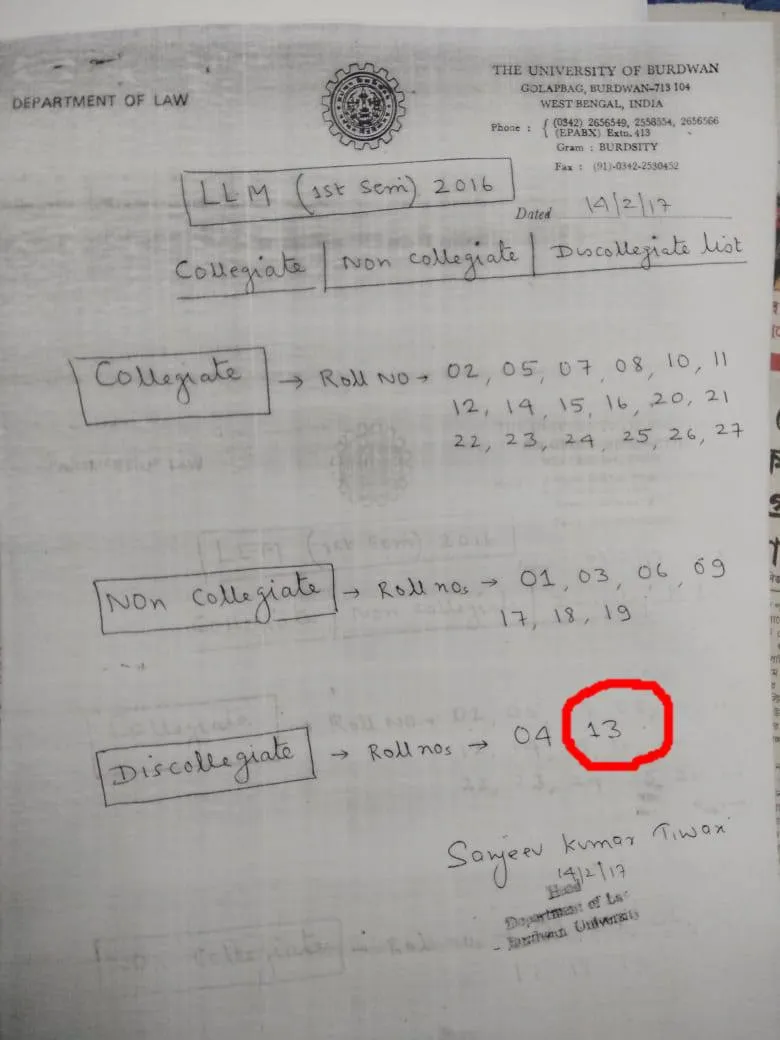 DEPARTMENT OF LAW
THE UNIVERSITY OF BURDWAN
GOLAPBAG, BURDWAN-713 104
WEST BENGAL, INDIA
Phone : { (0342) 2656549, 2558554, 2656566
(EPABX) Extn. 413
Gram : BURDSITY
Fax : (91)-0342-2530452
LLM (1st Sem) 2016
Dated 14/2/17
Collegiate | Non collegiate | Discollegiate list
Collegiate → Roll No → 02, 05, 07, 08, 10, 11
12, 14, 15, 16, 20, 21
22, 23, 24, 25, 26, 27
Non Collegiate → Roll nos → 01, 03, 06, 09
17, 18, 19
Discollegiate → Roll nos → 04 13
Sanjeev Kumar Tiwari
14/2/17
Head
Department of La
Burdwan University